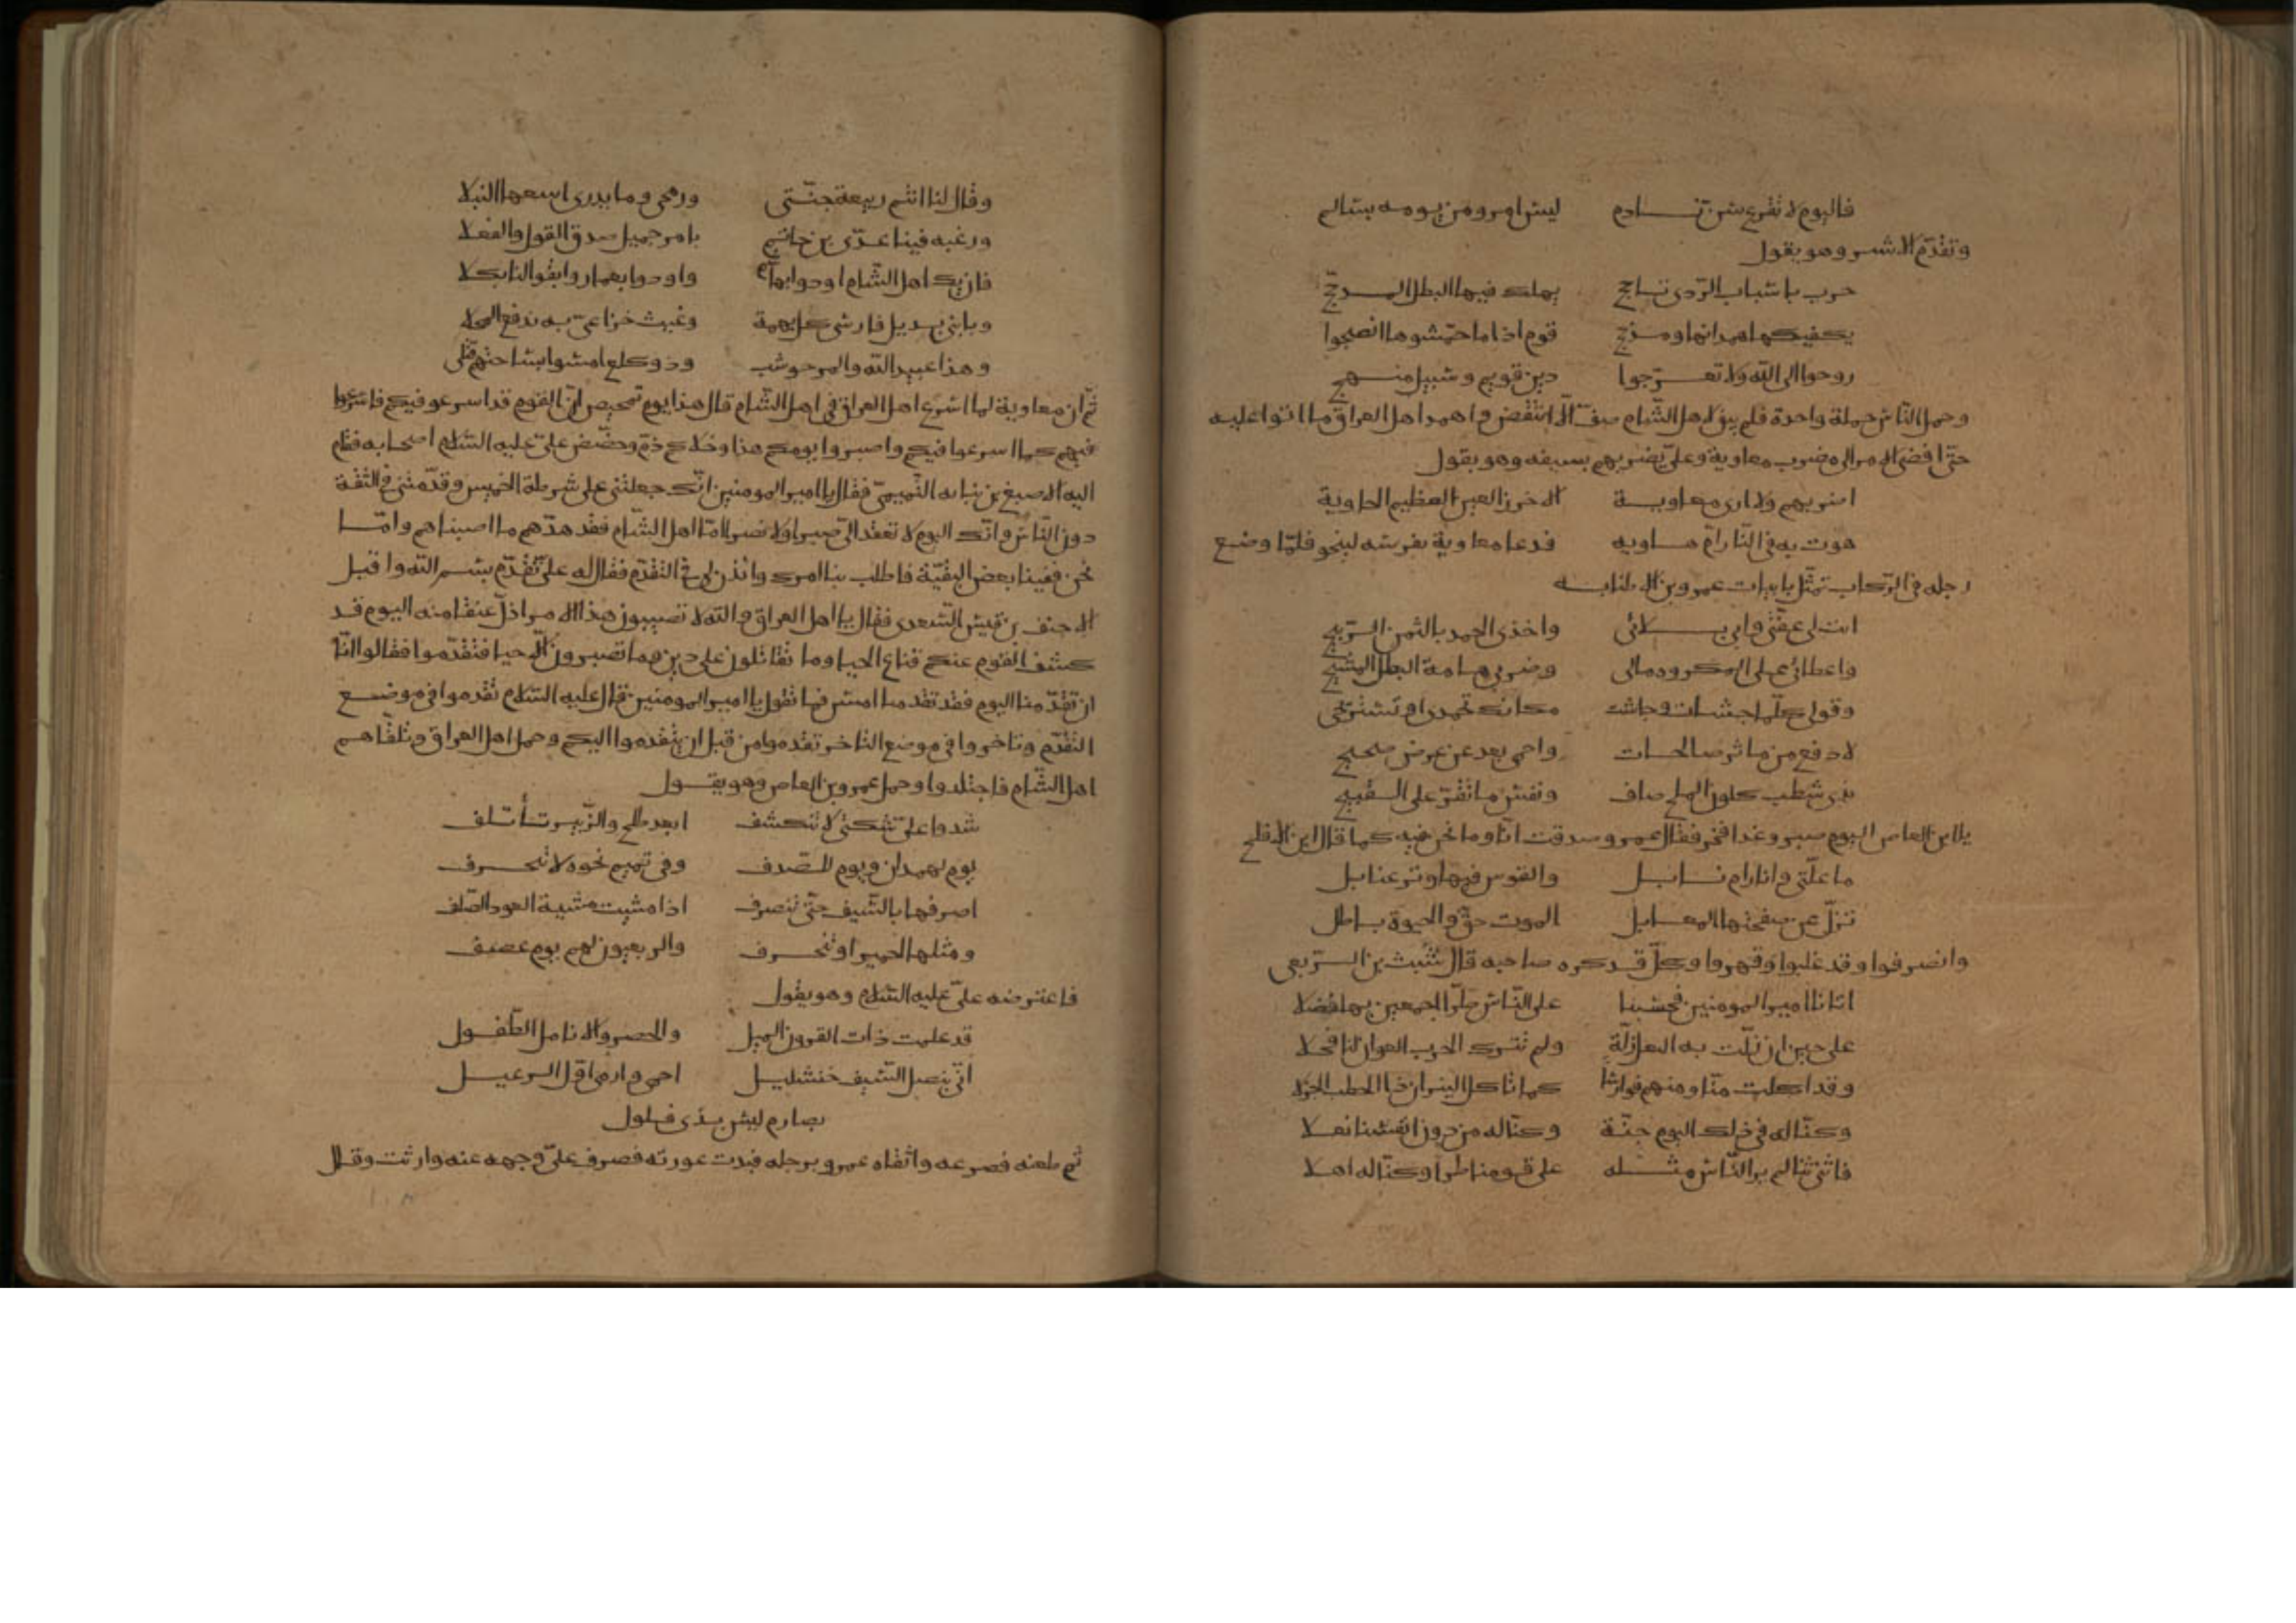 فاليوم لا نقرع سن نادم ليس امرو من يومه بسالم
وتقدم الاشتر وهو يقول
حرب باسباب الردى تاجج يهلك فيها البطل المدجج
يكفيكها همدانها ومذحج قوم اذا ما حمشوها انضجوا
روحوا الى الله ولا تعرجوا دين قويم وسبيل منهج
وحمل الناس حملة واحدة فلم يبق لاهل الشام صف الا انتقض واهمد اهل العراق ما اتوا عليه
حتى افضى الامر الى مضرب معاوية وعلى يضربهم بسيفه وهو يقول
اضربهم ولا ارى معاوية الاخزر العين العظيم الحاوية
هوت به في النار ام هاويه فدعا معاوية بفرسه لينجو فلما وضع
رجله في الركاب تمثل بابيات عمرو بن الاطنابه
ابت لي عفتي وابي بلائي واخذى الحمد بالثمن الربيح
واعطائي على المكروه مالى وضربي هامة البطل المشيح
وقولي كلما جشات وجاشت مكانك تحمدى او تستريحى
لادفع عن ماثر صالحات واحمى بعد عن عرض صحيح
بذى شطب كلون الملح صاف ونفس ما تقر على القبيح
يا ابن العاص اليوم صبر وغدا فخر فقال عمرو صدقت انا وما نحن فيه كما قال ابن الاقلح
ما علتى وانا رام نابل والقوس فيها وتر عنابل
تزل عن صفحتها المعابل الموت حق والحيوة باطل
وانصرفوا وقد غلبوا وقهروا وكل قد كره صاحبه قال شبث بن الربعى
اتانا امير المومنين فحسبنا على الناس طرا اجمعين بها فضلا
على حين ان زلت به النعل زلة ولم تترك الحرب العوان لنا فحلا
وقد اكلت منا ومنهم فوارسا كما تاكل النيران ذا الحطب الجزلا
وكنا له في ذلك اليوم جنة وكنا له من دون انفسنا نعلا
فاثنى ثنا لم ير الناس مثله على قومنا طرا وكنا له اهلا
وقال لنا انتم ربيعة جنتى ورمحى وما يدرى اسهمها النبلا
ورغبه فينا عدى بن حاتم بامر جميل صدق القول والفعلا
فان يك اهل الشام اودوا بهاشم واودوا بعمار وابقوا لنا ثكلا
وبابنى بديل فارسى كل بهمة وغيث خزاعى به ندفع المحلا
وهذا عبيد الله والمر حوشب وذو كلع امسوا بساحتهم قتلى
ثم ان معاوية لما اسرع اهل العراق في اهل الشام قال هذا يوم تمحيص ان القوم قد اسرعو فيكم فاسرعوا
فيهم كما اسرعوا فيكم واصبروا يومكم هذا وخلاكم ذم وحضض على عليه السلام اصحابه فقام
اليه الاصبغ بن نباته التميمى فقال يا امير المومنين انك جعلتنى على شرطة الخميس وقدمتنى في الثقة
دون الناس وانك اليوم لا تفقد الى صبرا ولا نصرا اما اهل الشام فقد هدهم ما اصبناهم واما
نحن ففينا بعض البقية فاطلب بنا امرك وائذن لي في التقدم فقال له على تقدم بسم الله واقبل
الاحنف بن قيس السعدى فقال يا اهل العراق والله لا تصيبون هذا الامر اذل عنقا منه اليوم قد
كشف القوم عنكم قناع الحيا وما تقاتلون على دين وما تصبرون الا حيا فتقدموا فقالوا انا
ان تقدمنا اليوم فقد تقدمنا امس فما تقول يا امير المومنين قال عليه السلام تقدموا في موضع
التقدم وتاخروا في موضع التاخر تقدموا من قبل ان يتقدموا اليكم وحمل اهل العراق وتلقاهم
اهل الشام فاجتلدوا وحمل عمرو بن العاص وهو يقول
شدوا على شكتى لا تنكشف ابعد طلح والزبير تاتلف
يوم لهمدان ويوم للصدف وفي تميم نخوه لا تنحرف
اضرفها بالسيف حتى تنصرف اذا مشيت مشية العود الصلف
ومثلها لحمير او تنحرف والربعيون لهم يوم عصف
فاعترضه على عليه السلام وهو يقول
قد علمت ذات القرون الميل والخصر والانامل الطفول
اني بنصل السيف خنشليل احمى وارمى اول الرعيل
بصارم ليس بذى فلول
ثم طعنه فصرعه واتقاه عمرو برجله فبدت عورته فصرف على وجهه عنه وارتث وقال